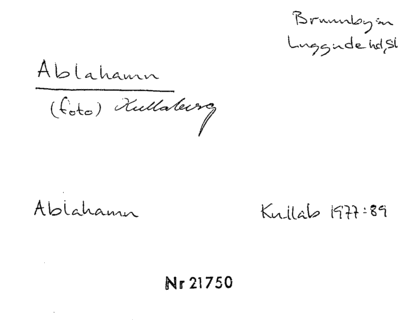 Brunnby sn
Luggude hd, Sk
Ablahamn
(foto) Kullaberg
Ablahamn Kullab 1977:89
Nr 21750